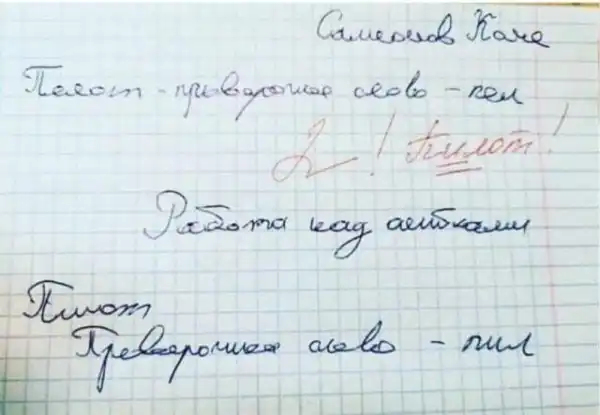 Самсонов Коля
Пелот - прыверочнае слово - пел
2! Пилот!
Работа над
Пилот
Преверочнае слово - пил